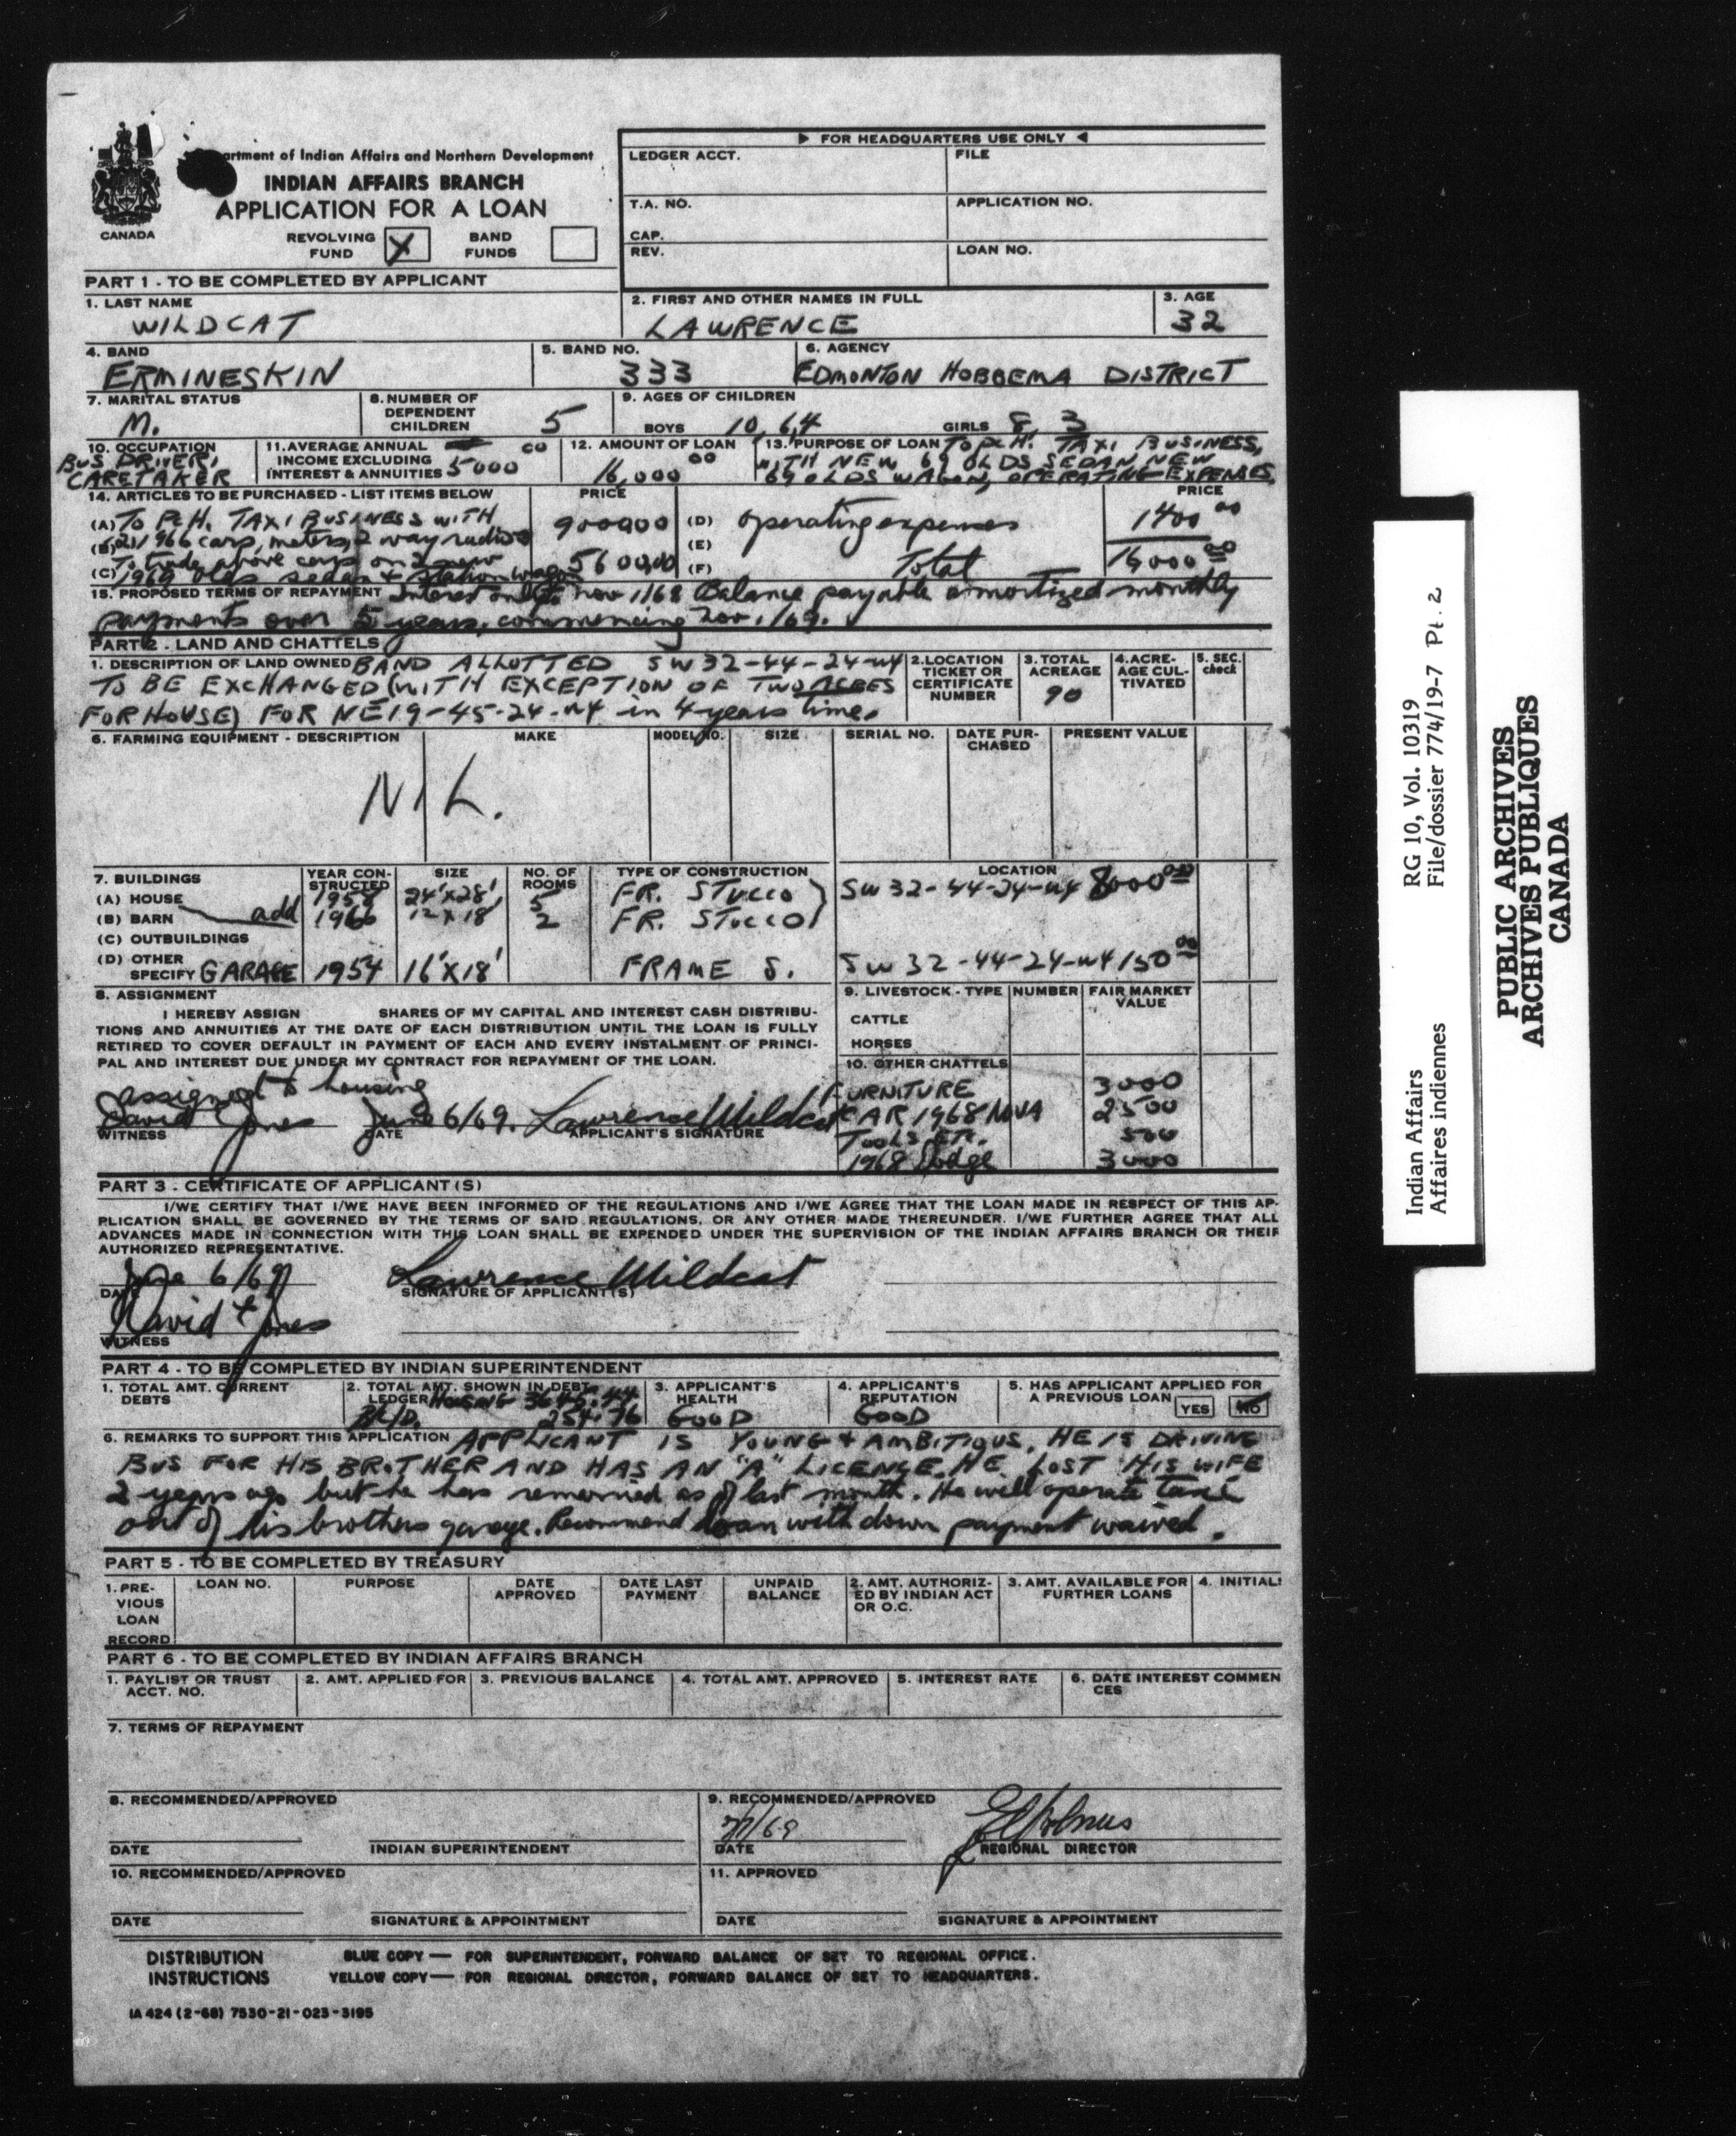 ▶ FOR HEADQUARTERS USE ONLY ◀
LEDGER ACCT.
FILE
T.A. NO.
APPLICATION NO.
CAP.
REV.
LOAN NO.
artment of Indian Affairs and Northern Development
INDIAN AFFAIRS BRANCH
APPLICATION FOR A LOAN
CANADA
REVOLVING FUND X BAND FUNDS
PART 1 - TO BE COMPLETED BY APPLICANT
1. LAST NAME 2. FIRST AND OTHER NAMES IN FULL 3. AGE
WILDCAT LAWRENCE 32
4. BAND 5. BAND NO. 6. AGENCY
ERMINESKIN 333 EDMONTON HOBBEMA DISTRICT
7. MARITAL STATUS 8. NUMBER OF DEPENDENT CHILDREN 9. AGES OF CHILDREN
M. 5 BOYS 10, 6, 4 GIRLS 8, 3
10. OCCUPATION 11. AVERAGE ANNUAL INCOME EXCLUDING INTEREST & ANNUITIES 12. AMOUNT OF LOAN 13. PURPOSE OF LOAN
BUS DRIVER, CARETAKER 5000 00 16,000 00 TO PCH. TAXI BUSINESS,
WITH NEW 69 OLDS SEDAN, NEW
69 OLDS WAGON, OPERATING EXPENSES.
14. ARTICLES TO BE PURCHASED - LIST ITEMS BELOW PRICE PRICE
(A) TO PCH. TAXI BUSINESS WITH 9000 00 (D) operating expenses 1400 00
(B) (2) 1966 cars, meters, 2 way radios (E)
(C) To trade above cars on 2 new 5600.00 (F) Total 16000 00
1969 olds sedan + station wagon
15. PROPOSED TERMS OF REPAYMENT Interest only to Nov 1/68 Balance payable amortized monthly
payments over 5 years, commencing Nov. 1/69.
PART 2 - LAND AND CHATTELS
1. DESCRIPTION OF LAND OWNED BAND ALLOTTED SW 32-44-24-W4
TO BE EXCHANGED (WITH EXCEPTION OF TWO ACRES
FOR HOUSE) FOR NE 19-45-24-W4 in 4 years time.
2. LOCATION TICKET OR CERTIFICATE NUMBER
3. TOTAL ACREAGE 90
4. ACREAGE CULTIVATED
5. SEC. check
6. FARMING EQUIPMENT - DESCRIPTION MAKE MODEL NO. SIZE SERIAL NO. DATE PURCHASED PRESENT VALUE
NIL.
7. BUILDINGS YEAR CONSTRUCTED SIZE NO. OF ROOMS TYPE OF CONSTRUCTION LOCATION
(A) HOUSE 1958 24'X28' 5 FR. STUCCO SW 32-44-24-W4 8000 00
(B) BARN add 1966 12 X 18' 2 FR. STUCCO
(C) OUTBUILDINGS
(D) OTHER SPECIFY GARAGE 1954 16'X18' FRAME S. SW 32-44-24-W4 150 00
8. ASSIGNMENT
I HEREBY ASSIGN SHARES OF MY CAPITAL AND INTEREST CASH DISTRIBU-
TIONS AND ANNUITIES AT THE DATE OF EACH DISTRIBUTION UNTIL THE LOAN IS FULLY
RETIRED TO COVER DEFAULT IN PAYMENT OF EACH AND EVERY INSTALMENT OF PRINCI-
PAL AND INTEREST DUE UNDER MY CONTRACT FOR REPAYMENT OF THE LOAN.
to housing
David Jones June 6/69. Lawrence Wildcat
WITNESS DATE APPLICANT'S SIGNATURE
9. LIVESTOCK - TYPE NUMBER FAIR MARKET VALUE
CATTLE
HORSES
10. OTHER CHATTELS
FURNITURE 3000
CAR 1968 NOVA 2500
TOOLS ETC. 500
1968 Dodge 3000
PART 3 - CERTIFICATE OF APPLICANT(S)
I/WE CERTIFY THAT I/WE HAVE BEEN INFORMED OF THE REGULATIONS AND I/WE AGREE THAT THE LOAN MADE IN RESPECT OF THIS AP-
PLICATION SHALL BE GOVERNED BY THE TERMS OF SAID REGULATIONS, OR ANY OTHER MADE THEREUNDER. I/WE FURTHER AGREE THAT ALL
ADVANCES MADE IN CONNECTION WITH THIS LOAN SHALL BE EXPENDED UNDER THE SUPERVISION OF THE INDIAN AFFAIRS BRANCH OR THEIR
AUTHORIZED REPRESENTATIVE.
June 6/69 Lawrence Wildcat
DATE SIGNATURE OF APPLICANT(S)
David Jones
WITNESS
PART 4 - TO BE COMPLETED BY INDIAN SUPERINTENDENT
1. TOTAL AMT. CURRENT DEBTS 2. TOTAL AMT. SHOWN IN DEBT LEDGER 3. APPLICANT'S HEALTH 4. APPLICANT'S REPUTATION 5. HAS APPLICANT APPLIED FOR A PREVIOUS LOAN YES NO
HOUSING 254.76 GOOD GOOD
6. REMARKS TO SUPPORT THIS APPLICATION APPLICANT IS YOUNG + AMBITIOUS. HE IS DRIVING
BUS FOR HIS BROTHER AND HAS AN "A" LICENCE. HE LOST HIS WIFE
2 years ago but he has remarried as of last month. He will operate taxi
out of his brothers garage. Recommend loan with down payment waived.
PART 5 - TO BE COMPLETED BY TREASURY
1. PREVIOUS LOAN RECORD LOAN NO. PURPOSE DATE APPROVED DATE LAST PAYMENT UNPAID BALANCE 2. AMT. AUTHORIZ-ED BY INDIAN ACT OR O.C. 3. AMT. AVAILABLE FOR FURTHER LOANS 4. INITIALS
PART 6 - TO BE COMPLETED BY INDIAN AFFAIRS BRANCH
1. PAYLIST OR TRUST ACCT. NO. 2. AMT. APPLIED FOR 3. PREVIOUS BALANCE 4. TOTAL AMT. APPROVED 5. INTEREST RATE 6. DATE INTEREST COMMENCES
7. TERMS OF REPAYMENT
8. RECOMMENDED/APPROVED 9. RECOMMENDED/APPROVED
DATE INDIAN SUPERINTENDENT DATE REGIONAL DIRECTOR
10. RECOMMENDED/APPROVED 11. APPROVED
DATE SIGNATURE & APPOINTMENT DATE SIGNATURE & APPOINTMENT
DISTRIBUTION INSTRUCTIONS
BLUE COPY — FOR SUPERINTENDENT, FORWARD BALANCE OF SET TO REGIONAL OFFICE.
YELLOW COPY — FOR REGIONAL DIRECTOR, FORWARD BALANCE OF SET TO HEADQUARTERS.
IA 424 (2-68) 7530-21-023-3195
Indian Affairs RG 10, Vol. 10319
Affaires indiennes File/dossier 774/19-7 Pt. 2
PUBLIC ARCHIVES
ARCHIVES PUBLIQUES
CANADA